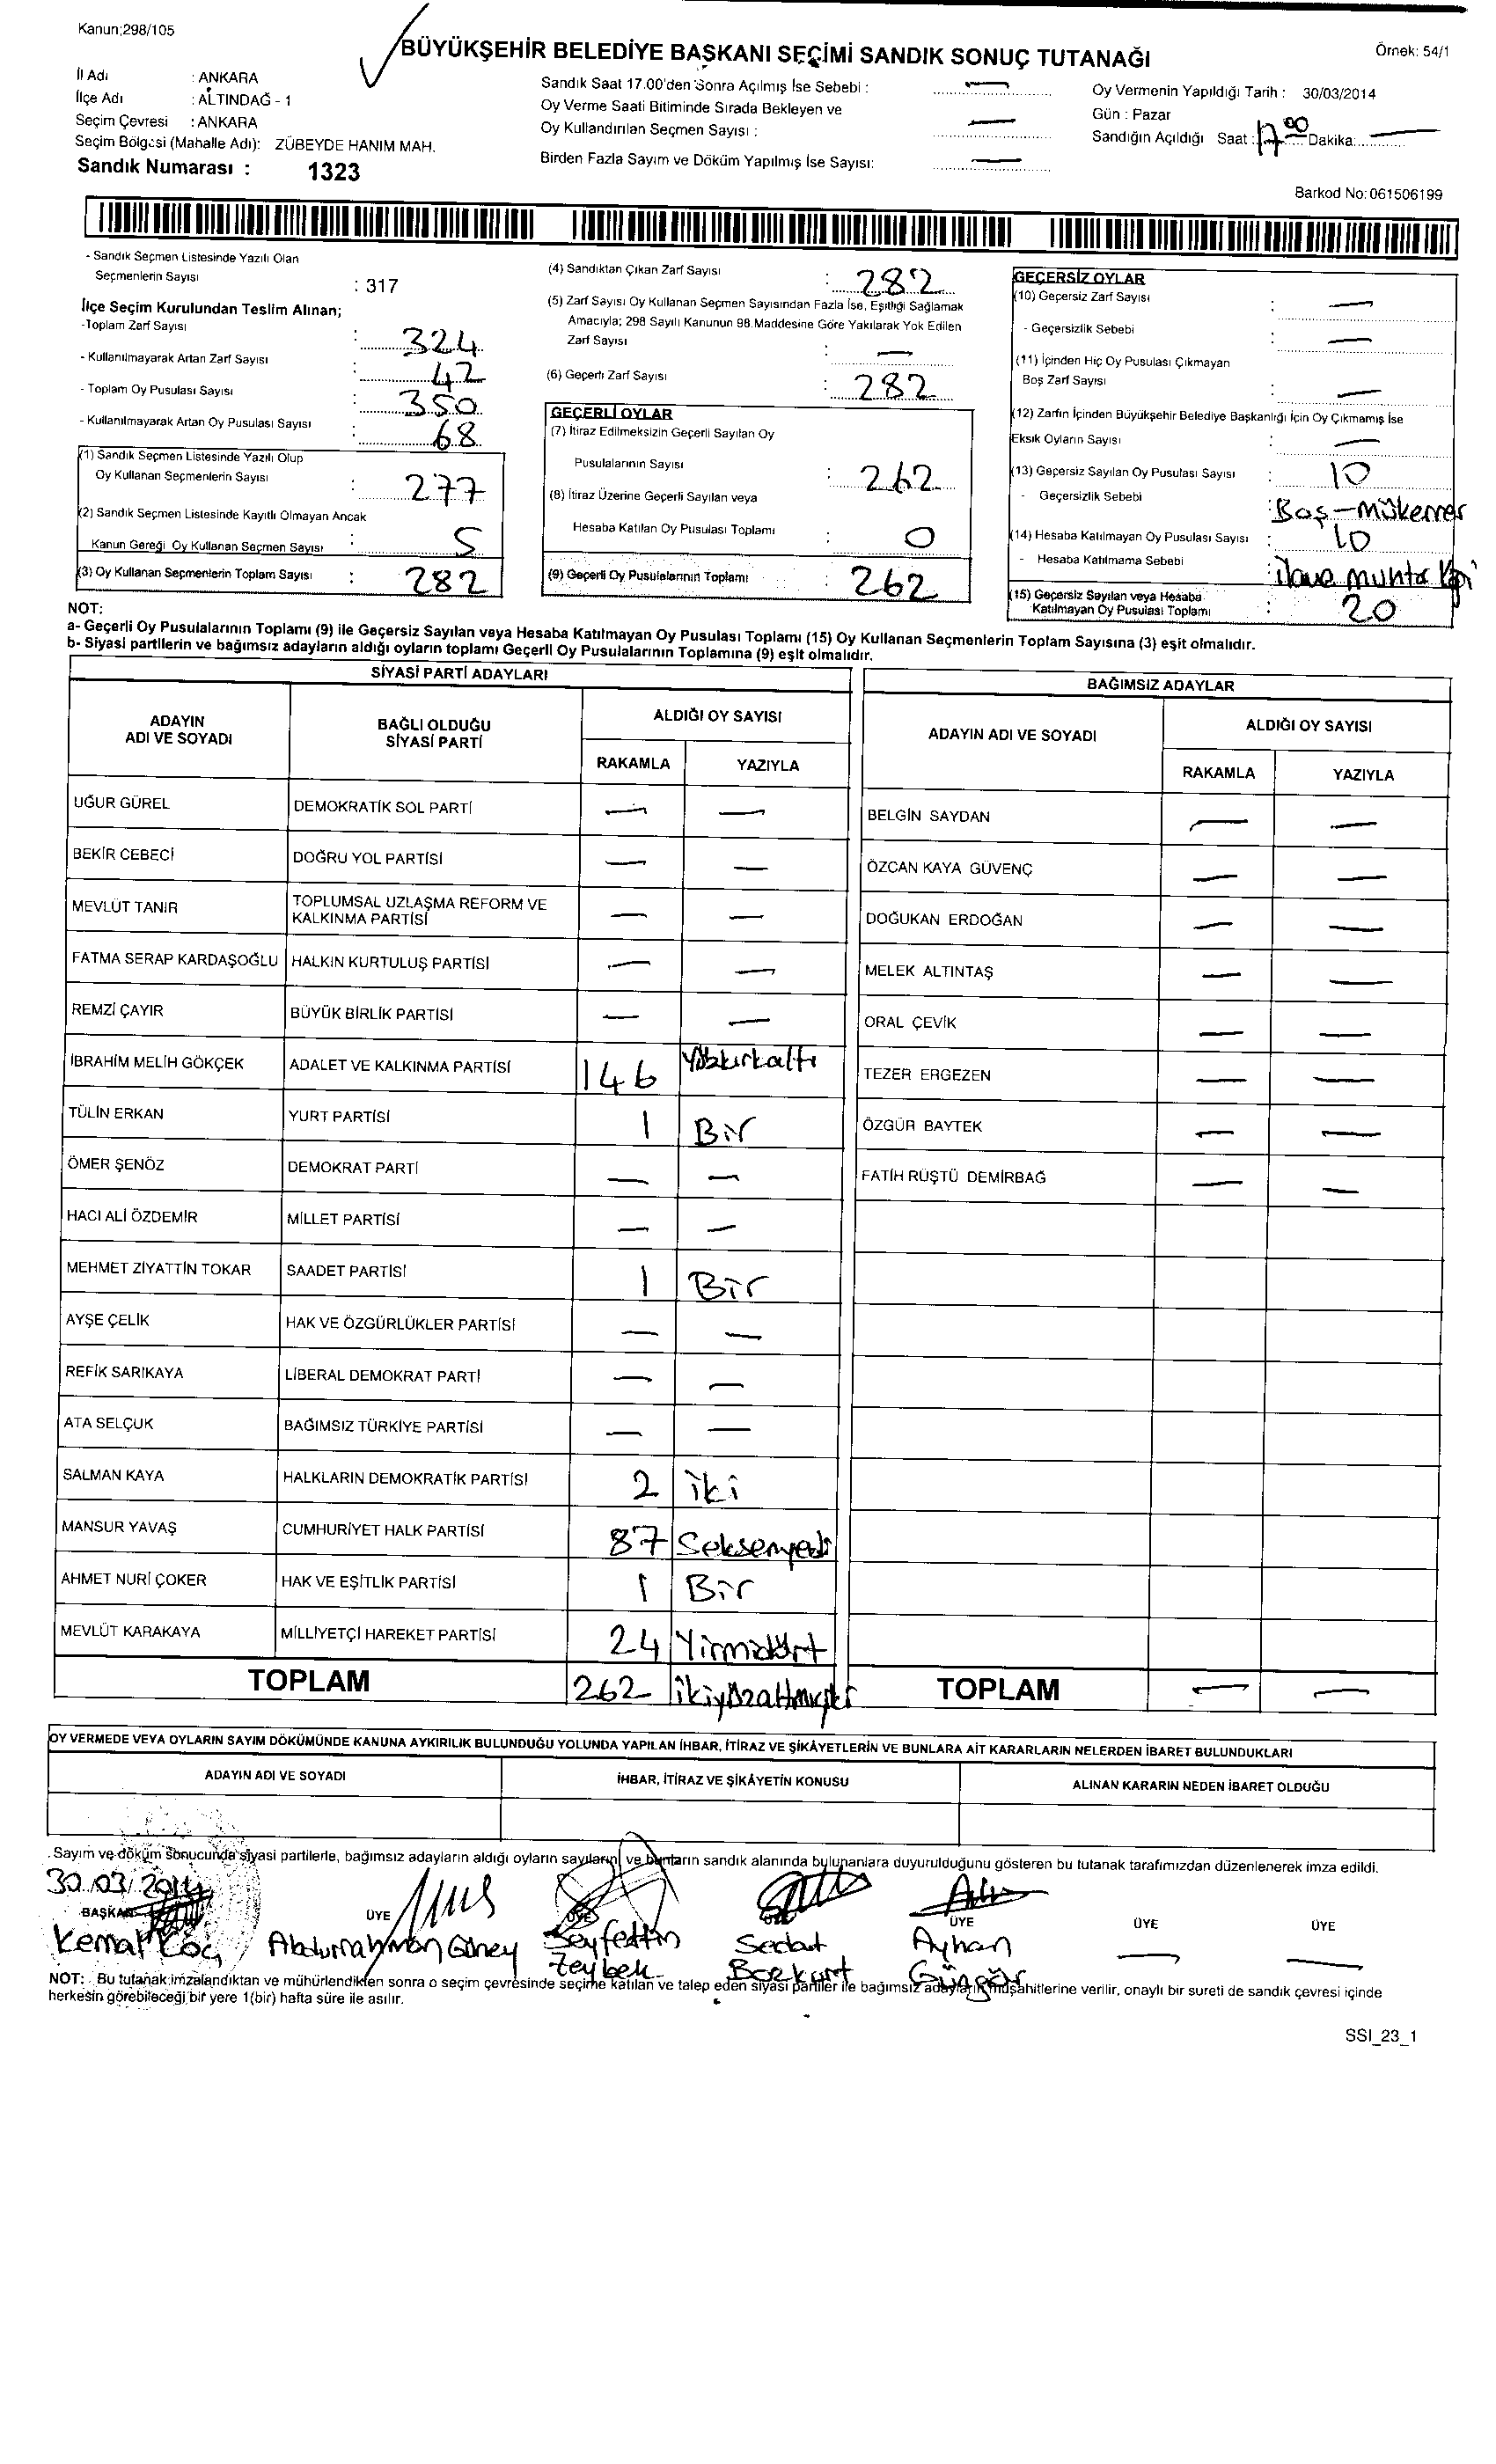 Kanun;298/105
BÜYÜKŞEHİR BELEDİYE BAŞKANI SEÇİMİ SANDIK SONUÇ TUTANAĞI
Örnek: 54/1
İl Adı : ANKARA
İlçe Adı : ALTINDAĞ - 1
Seçim Çevresi : ANKARA
Seçim Bölgesi (Mahalle Adı): ZÜBEYDE HANIM MAH.
Sandık Numarası : 1323
Sandık Saat 17.00'den Sonra Açılmış İse Sebebi : —
Oy Verme Saati Bitiminde Sırada Bekleyen ve
Oy Kullandırılan Seçmen Sayısı : —
Birden Fazla Sayım ve Döküm Yapılmış İse Sayısı: —
Oy Vermenin Yapıldığı Tarih : 30/03/2014
Gün : Pazar
Sandığın Açıldığı Saat : 17 00 Dakika: —
Barkod No: 061506199
- Sandık Seçmen Listesinde Yazılı Olan
Seçmenlerin Sayısı : 317
İlçe Seçim Kurulundan Teslim Alınan;
-Toplam Zarf Sayısı : 324
- Kullanılmayarak Artan Zarf Sayısı : 42
- Toplam Oy Pusulası Sayısı : 350
- Kullanılmayarak Artan Oy Pusulası Sayısı : 68
(1) Sandık Seçmen Listesinde Yazılı Olup
Oy Kullanan Seçmenlerin Sayısı : 277
(2) Sandık Seçmen Listesinde Kayıtlı Olmayan Ancak
Kanun Gereği Oy Kullanan Seçmen Sayısı : 5
(3) Oy Kullanan Seçmenlerin Toplam Sayısı : 282
(4) Sandıktan Çıkan Zarf Sayısı : 282
(5) Zarf Sayısı Oy Kullanan Seçmen Sayısından Fazla İse, Eşitliği Sağlamak
Amacıyla; 298 Sayılı Kanunun 98.Maddesine Göre Yakılarak Yok Edilen
Zarf Sayısı : —
(6) Geçerli Zarf Sayısı : 282
GEÇERLİ OYLAR
(7) İtiraz Edilmeksizin Geçerli Sayılan Oy
Pusulalarının Sayısı : 262
(8) İtiraz Üzerine Geçerli Sayılan veya
Hesaba Katılan Oy Pusulası Toplamı : 0
(9) Geçerli Oy Pusulalarının Toplamı : 262
GEÇERSİZ OYLAR
(10) Geçersiz Zarf Sayısı : —
- Geçersizlik Sebebi : —
(11) İçinden Hiç Oy Pusulası Çıkmayan
Boş Zarf Sayısı : —
(12) Zarfın İçinden Büyükşehir Belediye Başkanlığı İçin Oy Çıkmamış İse
Eksik Oyların Sayısı : —
(13) Geçersiz Sayılan Oy Pusulası Sayısı : 10
- Geçersizlik Sebebi : Boş-Mükerrer
(14) Hesaba Katılmayan Oy Pusulası Sayısı : 10
- Hesaba Katılmama Sebebi : ilave muhta
(15) Geçersiz Sayılan veya Hesaba
Katılmayan Oy Pusulası Toplamı : 20
NOT:
a- Geçerli Oy Pusulalarının Toplamı (9) ile Geçersiz Sayılan veya Hesaba Katılmayan Oy Pusulası Toplamı (15) Oy Kullanan Seçmenlerin Toplam Sayısına (3) eşit olmalıdır.
b- Siyasi partilerin ve bağımsız adayların aldığı oyların toplamı Geçerli Oy Pusulalarının Toplamına (9) eşit olmalıdır.
SİYASİ PARTİ ADAYLARI
ADAYIN ADI VE SOYADI BAĞLI OLDUĞU SİYASİ PARTİ ALDIĞI OY SAYISI
RAKAMLA YAZIYLA
UĞUR GÜREL DEMOKRATİK SOL PARTİ — —
BEKİR CEBECİ DOĞRU YOL PARTİSİ — —
MEVLÜT TANIR TOPLUMSAL UZLAŞMA REFORM VE KALKINMA PARTİSİ — —
FATMA SERAP KARDAŞOĞLU HALKIN KURTULUŞ PARTİSİ — —
REMZİ ÇAYIR BÜYÜK BİRLİK PARTİSİ — —
İBRAHİM MELİH GÖKÇEK ADALET VE KALKINMA PARTİSİ 146 Yüzkırkaltı
TÜLİN ERKAN YURT PARTİSİ 1 Bir
ÖMER ŞENÖZ DEMOKRAT PARTİ — —
HACI ALİ ÖZDEMİR MİLLET PARTİSİ — —
MEHMET ZİYATTİN TOKAR SAADET PARTİSİ 1 Bir
AYŞE ÇELİK HAK VE ÖZGÜRLÜKLER PARTİSİ — —
REFİK SARIKAYA LİBERAL DEMOKRAT PARTİ — —
ATA SELÇUK BAĞIMSIZ TÜRKİYE PARTİSİ — —
SALMAN KAYA HALKLARIN DEMOKRATİK PARTİSİ 2 iki
MANSUR YAVAŞ CUMHURİYET HALK PARTİSİ 87 Seksenyedi
AHMET NURİ ÇOKER HAK VE EŞİTLİK PARTİSİ 1 Bir
MEVLÜT KARAKAYA MİLLİYETÇİ HAREKET PARTİSİ 24 Yirmidört
TOPLAM 262 ikiyüzaltmışiki
BAĞIMSIZ ADAYLAR
ADAYIN ADI VE SOYADI ALDIĞI OY SAYISI
RAKAMLA YAZIYLA
BELGİN SAYDAN — —
ÖZCAN KAYA GÜVENÇ — —
DOĞUKAN ERDOĞAN — —
MELEK ALTINTAŞ — —
ORAL ÇEVİK — —
TEZER ERGEZEN — —
ÖZGÜR BAYTEK — —
FATİH RÜŞTÜ DEMİRBAĞ — —
TOPLAM — —
OY VERMEDE VEYA OYLARIN SAYIM DÖKÜMÜNDE KANUNA AYKIRILIK BULUNDUĞU YOLUNDA YAPILAN İHBAR, İTİRAZ VE ŞİKÂYETLERİN VE BUNLARA AİT KARARLARIN NELERDEN İBARET BULUNDUKLARI
ADAYIN ADI VE SOYADI İHBAR, İTİRAZ VE ŞİKÂYETİN KONUSU ALINAN KARARIN NEDEN İBARET OLDUĞU
Sayım ve döküm sonucunda siyasi partilerle, bağımsız adayların aldığı oyların sayılarını ve bunların sandık alanında bulunanlara duyurulduğunu gösteren bu tutanak tarafımızdan düzenlenerek imza edildi.
30.03.2014
BAŞKAN ÜYE ÜYE ÜYE ÜYE ÜYE ÜYE
Kemal Koç Abdurrahman Güney Seyfettin Zeybek Sedat Bozkurt Ayhan Güngör — —
NOT: Bu tutanak imzalandıktan ve mühürlendikten sonra o seçim çevresinde seçime katılan ve talep eden siyasi partiler ile bağımsız adayların müşahitlerine verilir, onaylı bir sureti de sandık çevresi içinde
herkesin görebileceği bir yere 1(bir) hafta süre ile asılır.
SSI_23_1